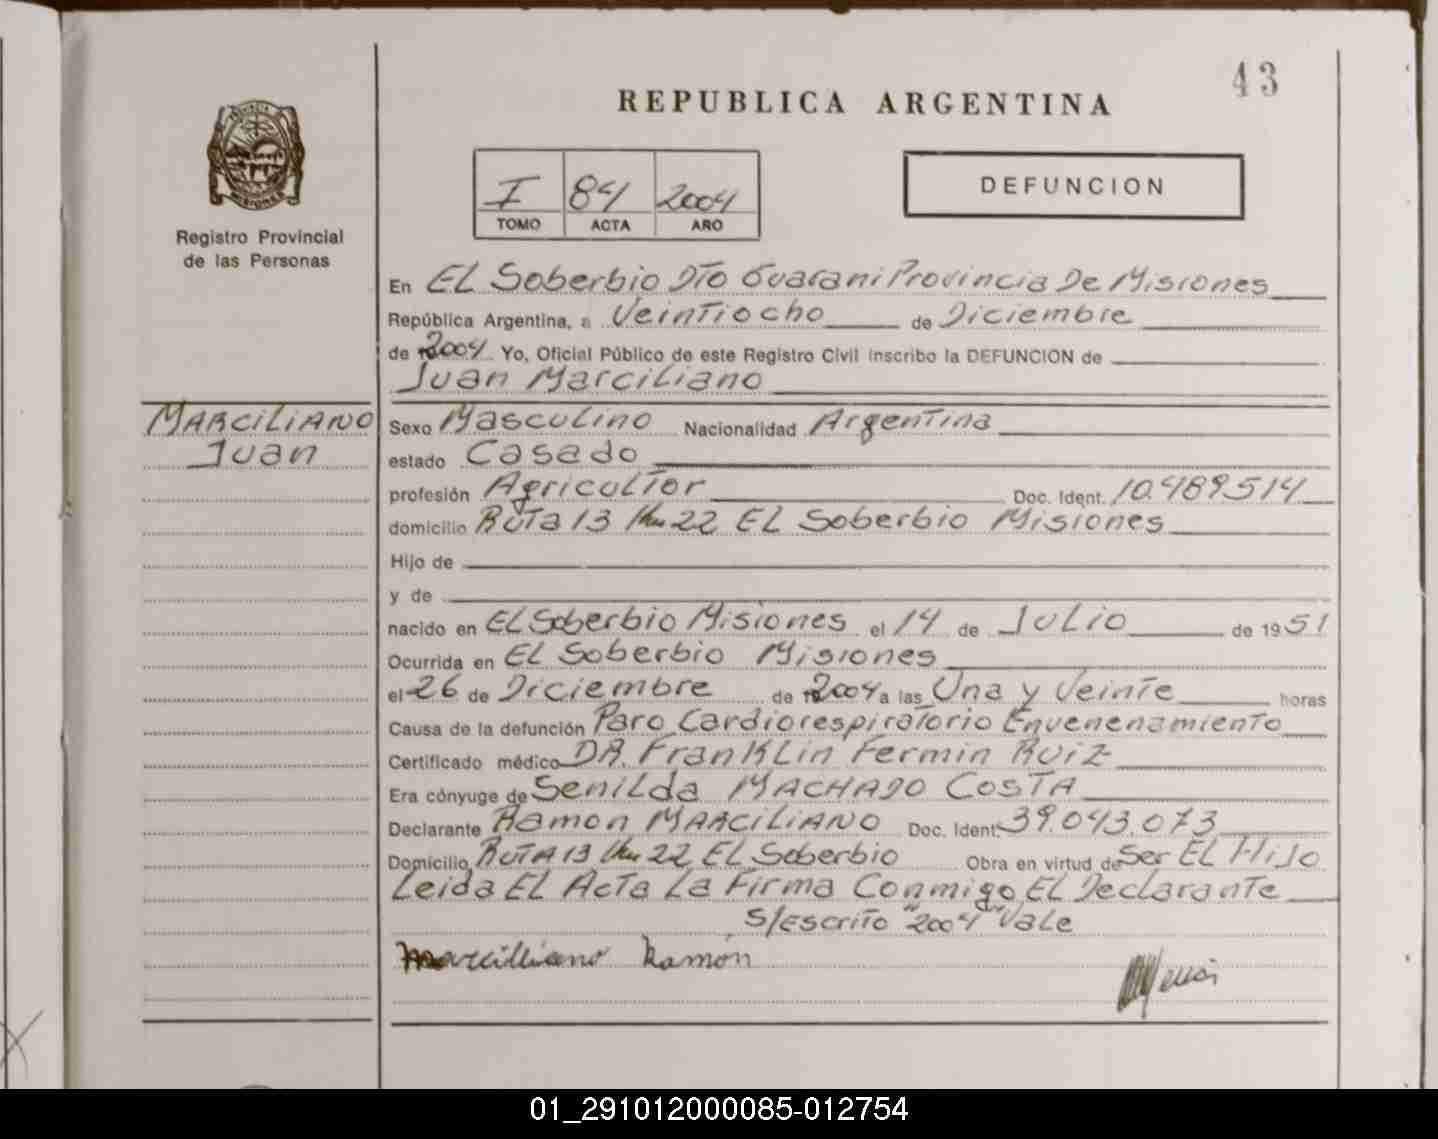 43
REPUBLICA ARGENTINA
I 84 2004
TOMO ACTA AÑO
DEFUNCION
Registro Provincial
de las Personas
En EL Soberbio DTo Guarani Provincia De Misiones
República Argentina, a VeinTiocho de Diciembre
de 2004 Yo, Oficial Público de este Registro Civil inscribo la DEFUNCION de
Juan Marciliano
MARCILIANO
Juan
Sexo Masculino Nacionalidad ArgenTina
estado Casado
profesión AgriculTor Doc. Ident. 10.489514
domicilio RUTA 13 Km 22 EL Soberbio Misiones
Hijo de
y de
nacido en EL Soberbio Misiones el 14 de JuLio de 1951
Ocurrida en EL Soberbio Misiones
el 26 de Diciembre de 2004 a las Una y VeinTe horas
Causa de la defunción Paro CardiorespiraTorio EnvenenamienTo
Certificado médico DR. FranKLin Fermin RUiZ
Era cónyuge de SeniLda MACHADO COSTA
Declarante Ramon MARCiLiANO Doc. Ident. 39.043.073
Domicilio RUTA 13 Km 22 EL Soberbio Obra en virtud de Ser EL HiJo
Leida EL AcTa La Firma Conmigo EL DeclaranTe
S/EscriTo "2004" VaLe
Marcilliano Ramón
01_291012000085-012754